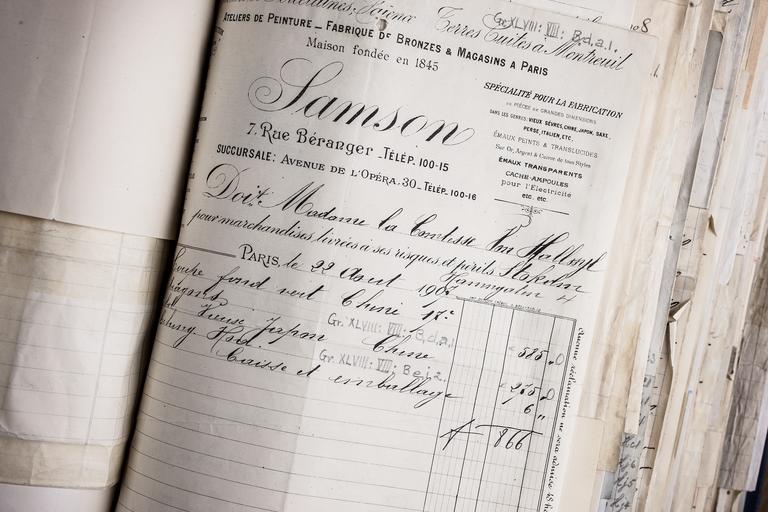 Porcelaines, Faïence Terres Cuites à Montreuil
Gr XLVIII: VII: B.d.a.1.
Ateliers de Peinture _ Fabrique de Bronzes & Magasins à Paris
Maison fondée en 1845
Samson
7, Rue Béranger _ Télép. 100-15
Succursale: Avenue de l'Opéra, 30 _ Télép. 100-16
SPÉCIALITÉ POUR LA FABRICATION
de PIÈCES de GRANDES DIMENSIONS
DANS LES GENRES: VIEUX SÈVRES, CHINE, JAPON, SAXE,
PERSE, ITALIEN, ETC.
ÉMAUX PEINTS & TRANSLUCIDES
Sur Or, Argent & Cuivre de tous Styles
ÉMAUX TRANSPARENTS
CACHE-AMPOULES
pour l'Electricité
etc. etc.
Doit Madame la Comtesse Von Hallwyl
pour marchandises livrées à ses risques et périls Stokolm
Hamngatan 4
Paris, le 22 Aout 190
Coupe fond vert Chine 17
585
Gr. XLVIII: VII: B.d.a.1.
Japon Chine
Gr. XLVIII: VII: B e 12.
275
Caisse et emballage
6 "
f 866
Aucune réclamation ne sera admise